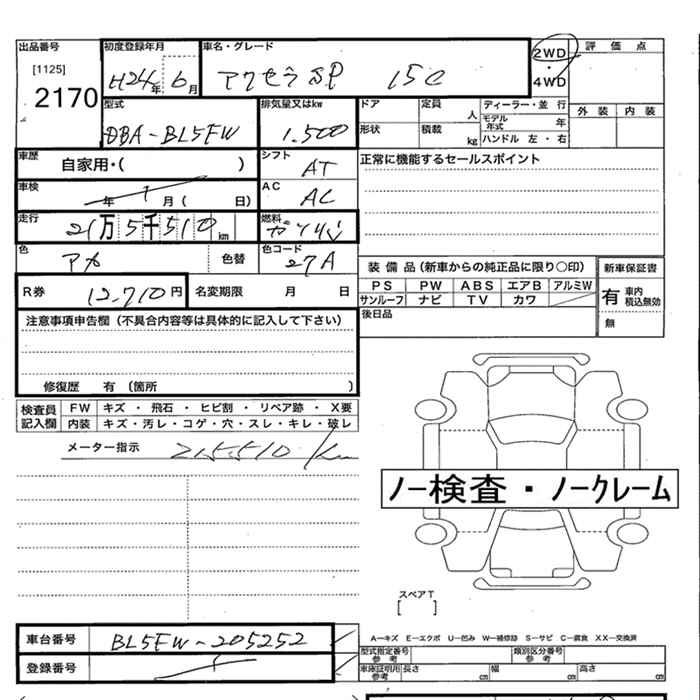 出品番号 初度登録年月 車名・グレード 2WD・4WD 評価点
[1125] 2170 H24年 6月 アクセラSP 15C
型式 排気量又はkw ドア 定員 人 ディーラー・並行 外装 内装
DBA-BL5FW 1.500 形状 積載 kg モデル年式 年 ハンドル 左・右
車歴 自家用・( ) シフト AT 正常に機能するセールスポイント
車検 年 月( 日) AC AC
走行 21万5千510km 燃料 ガソリン
色 アカ 色替 色コード 27A
装備品(新車からの純正品に限り○印) 新車保証書
R券 12.710円 名変期限 月 日 PS PW ABS エアB アルミW 有 車内 税込無効
サンルーフ ナビ TV カワ
注意事項申告欄(不具合内容等は具体的に記入して下さい) 後日品 無
修復歴 有(箇所 )
検査員記入欄 FW キズ・飛石・ヒビ割・リペア跡・X要
内装 キズ・汚レ・コゲ・穴・スレ・キレ・破レ
メーター指示 215.510 km
ノー検査・ノークレーム
スペアT
[ ]
車台番号 BL5FW-205252
A—キズ E—エクボ U—凹み W—補修跡 S—サビ C—腐食 XX—交換済
型式指定番号 参考 類別区分番号 参考
登録番号 車庫証明用 参考 長さ cm 幅 cm 高さ cm